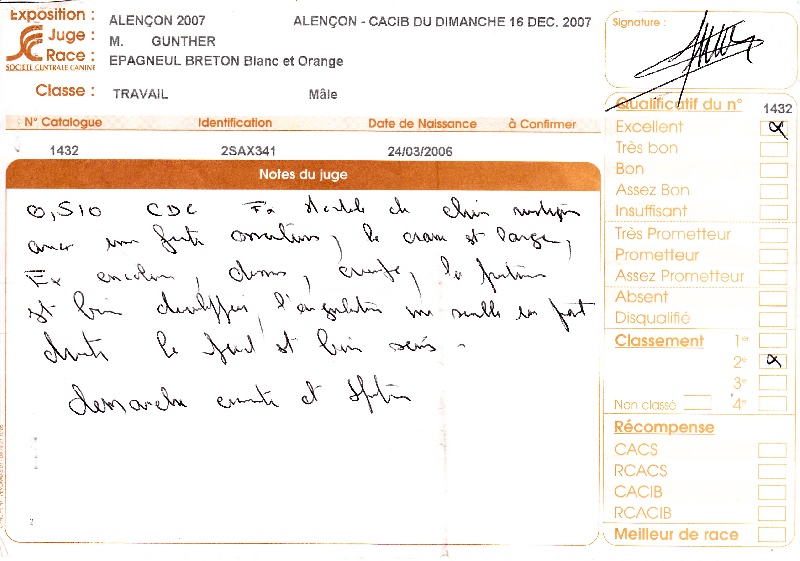 Exposition : ALENÇON 2007 ALENÇON - CACIB DU DIMANCHE 16 DEC. 2007
Juge : M. GUNTHER
Race : EPAGNEUL BRETON Blanc et Orange
SOCIÉTÉ CENTRALE CANINE
Classe : TRAVAIL Mâle
N° Catalogue Identification Date de Naissance à Confirmer
1432 2SAX341 24/03/2006
Notes du juge
0,510 CDC Ex de chien
avec une forte ossature, le crane est large,
Ex encolure, dessus, croupe, la poitrine
est bien developpée, l'angulation me semble un peu
droite le fouet est bien
demarche et
Signature :
Qualificatif du n° 1432
Excellent
Très bon
Bon
Assez Bon
Insuffisant
Très Prometteur
Prometteur
Assez Prometteur
Absent
Disqualifié
Classement 1er
2e
3e
Non classé 4e
Récompense
CACS
RCACS
CACIB
RCACIB
Meilleur de race